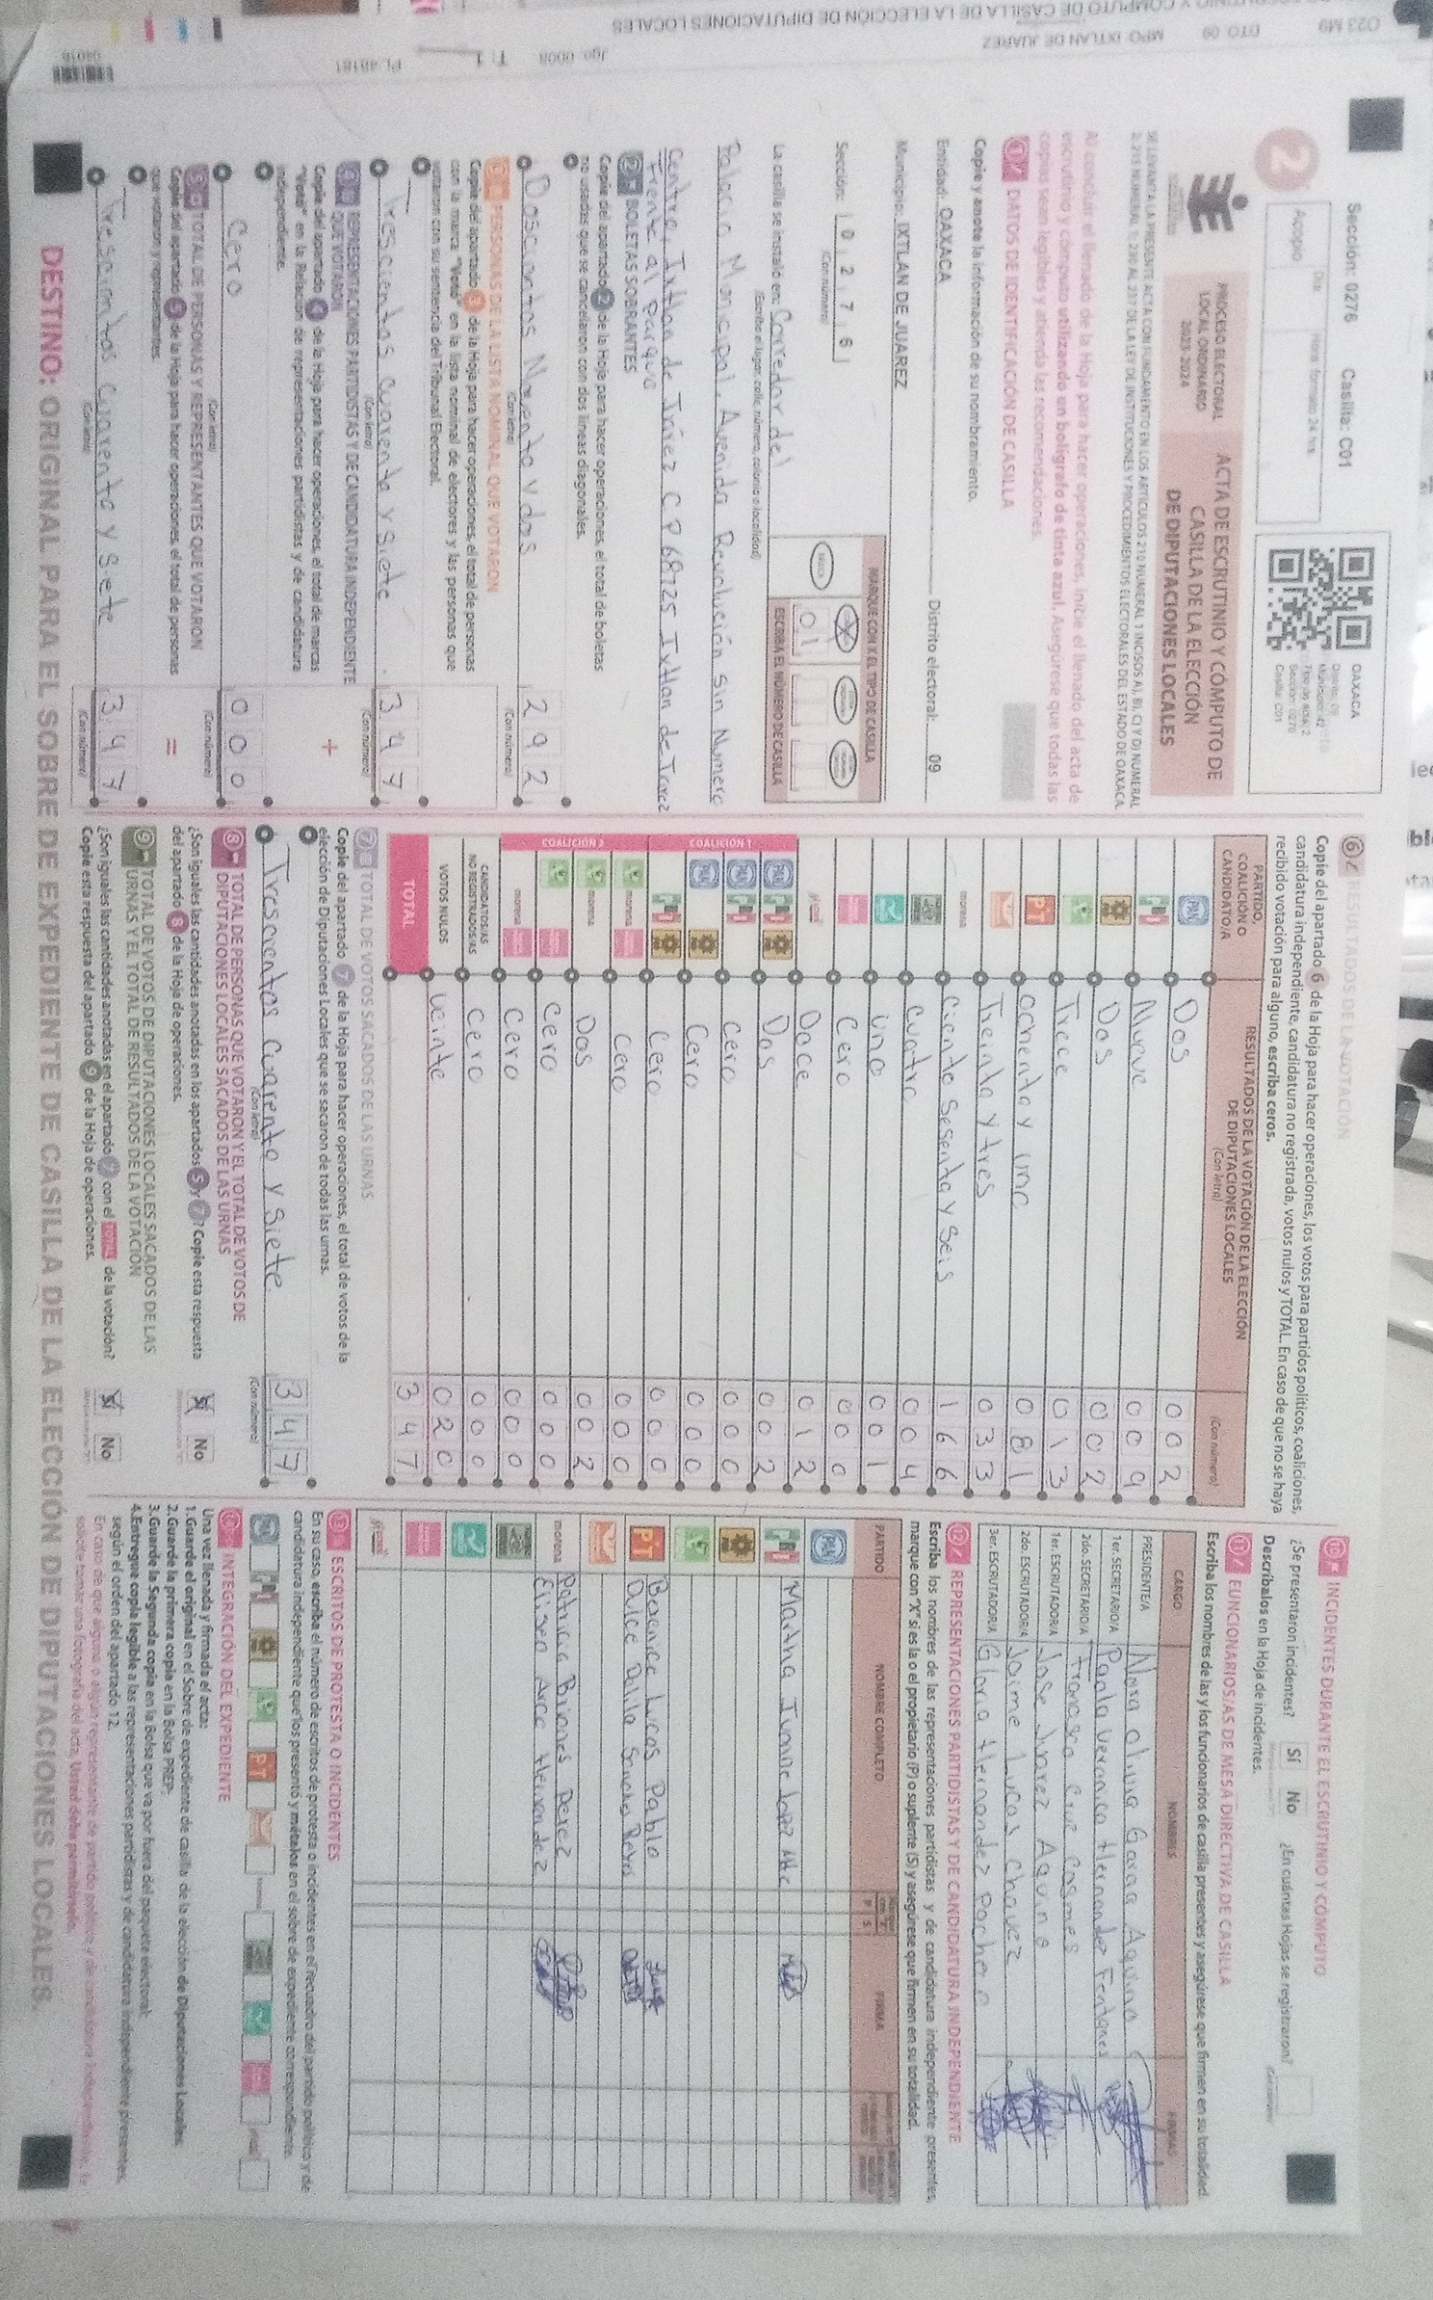 Sección: 0276 Casilla: C01
2
Acopio
Día
Hora: formato 24 hrs
OAXACA
Distrito: 09
Tipo de acta: 2
Sección: 0276
Casilla: C01
PROCESO ELECTORAL
LOCAL ORDINARIO
2023-2024
ACTA DE ESCRUTINIO Y CÓMPUTO DE
CASILLA DE LA ELECCIÓN
DE DIPUTACIONES LOCALES
Al concluir el llenado de la Hoja para hacer operaciones, inicie el llenado del acta de
escrutinio y cómputo utilizando un bolígrafo de tinta azul. Asegúrese que todas las
copias sean legibles y atienda las recomendaciones.
1 DATOS DE IDENTIFICACIÓN DE CASILLA
Copie y anote la información de su nombramiento.
Entidad: OAXACA Distrito electoral: 09
Municipio: IXTLAN DE JUAREZ
Sección: 0 2 7 6
(Con número)
MARQUE CON X EL TIPO DE CASILLA
ESCRIBA EL NÚMERO DE CASILLA
01
La casilla se instaló en: Corredor del
(Escriba el lugar, calle, número, colonia o localidad)
Palacio Municipal, Avenida Revolución sin Numero
Centro, Ixtlan de Juárez C P 68725 Ixtlan de Juarez
Frente al Parque
2 BOLETAS SOBRANTES
Copie del apartado 2 de la Hoja para hacer operaciones, el total de boletas
no usadas que se cancelaron con dos líneas diagonales.
Doscientos Noventa y dos 2 9 2
(Con letra) (Con número)
3 PERSONAS DE LA LISTA NOMINAL QUE VOTARON
Copie del apartado 3 de la Hoja para hacer operaciones, el total de personas
con la marca "Votó" en la lista nominal de electores y las personas que
votaron con su sentencia del Tribunal Electoral.
Trescientos cuarenta y siete 3 4 7
(Con letra) (Con número)
4 REPRESENTACIONES PARTIDISTAS Y DE CANDIDATURA INDEPENDIENTE
QUE VOTARON
Copie del apartado 4 de la Hoja para hacer operaciones, el total de marcas
"Votó" en la Relación de representaciones partidistas y de candidatura
independiente.
+
Cero 0 0 0
(Con letra) (Con número)
5 TOTAL DE PERSONAS Y REPRESENTANTES QUE VOTARON
Copie del apartado 5 de la Hoja para hacer operaciones, el total de personas
que votaron y representantes.
=
Trescientos Cuarenta y Siete 3 4 7
(Con letra) (Con número)
6 RESULTADOS DE LA VOTACIÓN
Copie del apartado 6 de la Hoja para hacer operaciones, los votos para partidos políticos, coaliciones,
candidatura independiente, candidatura no registrada, votos nulos y TOTAL. En caso de que no se haya
recibido votación para alguno, escriba ceros.
PARTIDO,
COALICIÓN O
CANDIDATO/A
RESULTADOS DE LA VOTACIÓN DE LA ELECCIÓN
DE DIPUTACIONES LOCALES
(Con letra) (Con número)
PAN Dos 0 0 2
PRI Nueve 0 0 9
PRD Dos 0 0 2
Trece 0 1 3
PT Ochenta y uno 0 8 1
Treinta y tres 0 3 3
morena Ciento Sesenta y Seis 1 6 6
Cuatro 0 0 4
uno 0 0 1
Cero 0 0 0
Doce 0 1 2
COALICIÓN 1
PAN PRI PRD Dos 0 0 2
PAN PRI Cero 0 0 0
PAN PRD Cero 0 0 0
PRI PRD Cero 0 0 0
COALICIÓN 2
morena Cero 0 0 0
morena Dos 0 0 2
Cero 0 0 0
morena Cero 0 0 0
CANDIDATOS/AS
NO REGISTRADOS/AS Cero 0 0 0
VOTOS NULOS Veinte 0 2 0
TOTAL 3 4 7
7 TOTAL DE VOTOS SACADOS DE LAS URNAS
Copie del apartado 7 de la Hoja para hacer operaciones, el total de votos de la
elección de Diputaciones Locales que se sacaron de todas las urnas.
Trescientos Cuarenta y Siete 3 4 7
(Con letra) (Con número)
8 TOTAL DE PERSONAS QUE VOTARON Y EL TOTAL DE VOTOS DE
DIPUTACIONES LOCALES SACADOS DE LAS URNAS
¿Son iguales las cantidades anotadas en los apartados 5 y 7? Copie esta respuesta
del apartado 8 de la Hoja de operaciones.
Sí No
9 TOTAL DE VOTOS DE DIPUTACIONES LOCALES SACADOS DE LAS
URNAS Y EL TOTAL DE RESULTADOS DE LA VOTACIÓN
¿Son iguales las cantidades anotadas en el apartado 7 con el TOTAL de la votación?
Copie esta respuesta del apartado 9 de la Hoja de operaciones.
Sí No
10 INCIDENTES DURANTE EL ESCRUTINIO Y CÓMPUTO
¿Se presentaron incidentes? Sí No ¿En cuántas Hojas se registraron?
Descríbalos en la Hoja de incidentes.
11 FUNCIONARIOS/AS DE MESA DIRECTIVA DE CASILLA
Escriba los nombres de las y los funcionarios de casilla presentes y asegúrese que firmen en su totalidad.
CARGO NOMBRES FIRMAS
PRESIDENTE/A Nora Olivia Garcia Aquino
1er. SECRETARIO/A Paola Veronica Hernandez
2do. SECRETARIO/A Francisco Cruz Cosmes
1er. ESCRUTADOR/A Jose Juarez Aquino
2do. ESCRUTADOR/A Jaime Lucas Chavez
3er. ESCRUTADOR/A Gloria Hernandez Pacheco
12 REPRESENTACIONES PARTIDISTAS Y DE CANDIDATURA INDEPENDIENTE
Escriba los nombres de las representaciones partidistas y de candidatura independiente presentes,
marque con "X" si es la o el propietario (P) o suplente (S) y asegúrese que firmen en su totalidad.
PARTIDO NOMBRE COMPLETO P S FIRMA
PAN
PRI Martha Ivonne
PRD
PT Berenice Lucas Pablo
Dulce Dalila Sanchez
morena Patricia Briones Perez
Eliseo Arce Hernandez
13 ESCRITOS DE PROTESTA O INCIDENTES
En su caso, escriba el número de escritos de protesta o incidentes en el recuadro del partido político y de
candidatura independiente que los presentó y métalos en el sobre de expediente correspondiente.
14 INTEGRACIÓN DEL EXPEDIENTE
Una vez llenada y firmada el acta:
1.Guarde el original en el Sobre de expediente de casilla de la elección de Diputaciones Locales.
2.Guarde la primera copia en la Bolsa PREP.
3.Guarde la Segunda copia en la Bolsa que va por fuera del paquete electoral.
4.Entregue copia legible a las representaciones partidistas y de candidatura independiente presentes,
según el orden del apartado 12.
DESTINO: ORIGINAL PARA EL SOBRE DE EXPEDIENTE DE CASILLA DE LA ELECCIÓN DE DIPUTACIONES LOCALES.
O23 M9 DTO 09 MPO IXTLAN DE JUAREZ
Y CÓMPUTO DE CASILLA DE LA ELECCIÓN DE DIPUTACIONES LOCALES